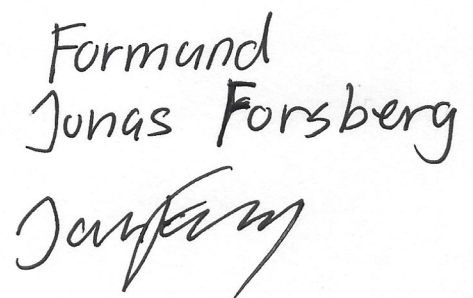 Formand
Jonas Forsberg